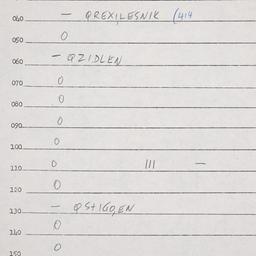 040 — QREXILESNIK (414
050 0
060 — QZIDLEN
070 0
080 0
090 0
100 0
110 0 111 —
120 0
130 — QSTIGO,EN
140 0
150 0